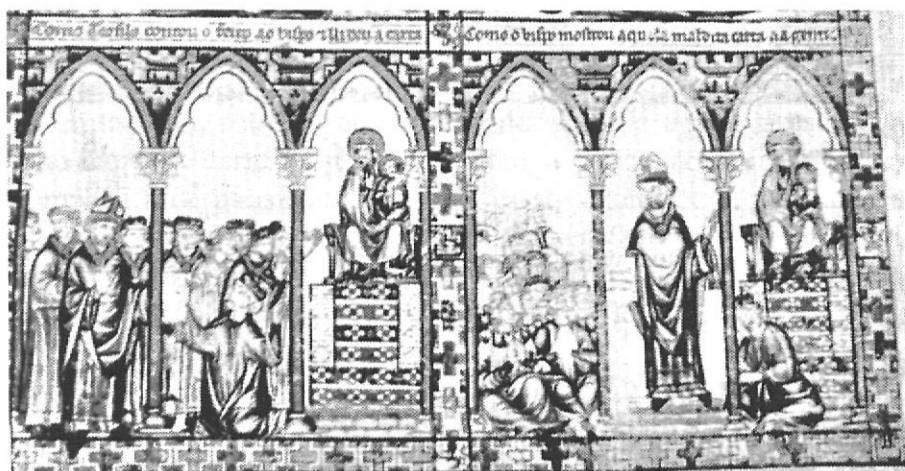 Como Teofilo contou o feito ao bispo ⁊ lli deu a carta
Como o bispo mostrou aquela maldita carta aa gente